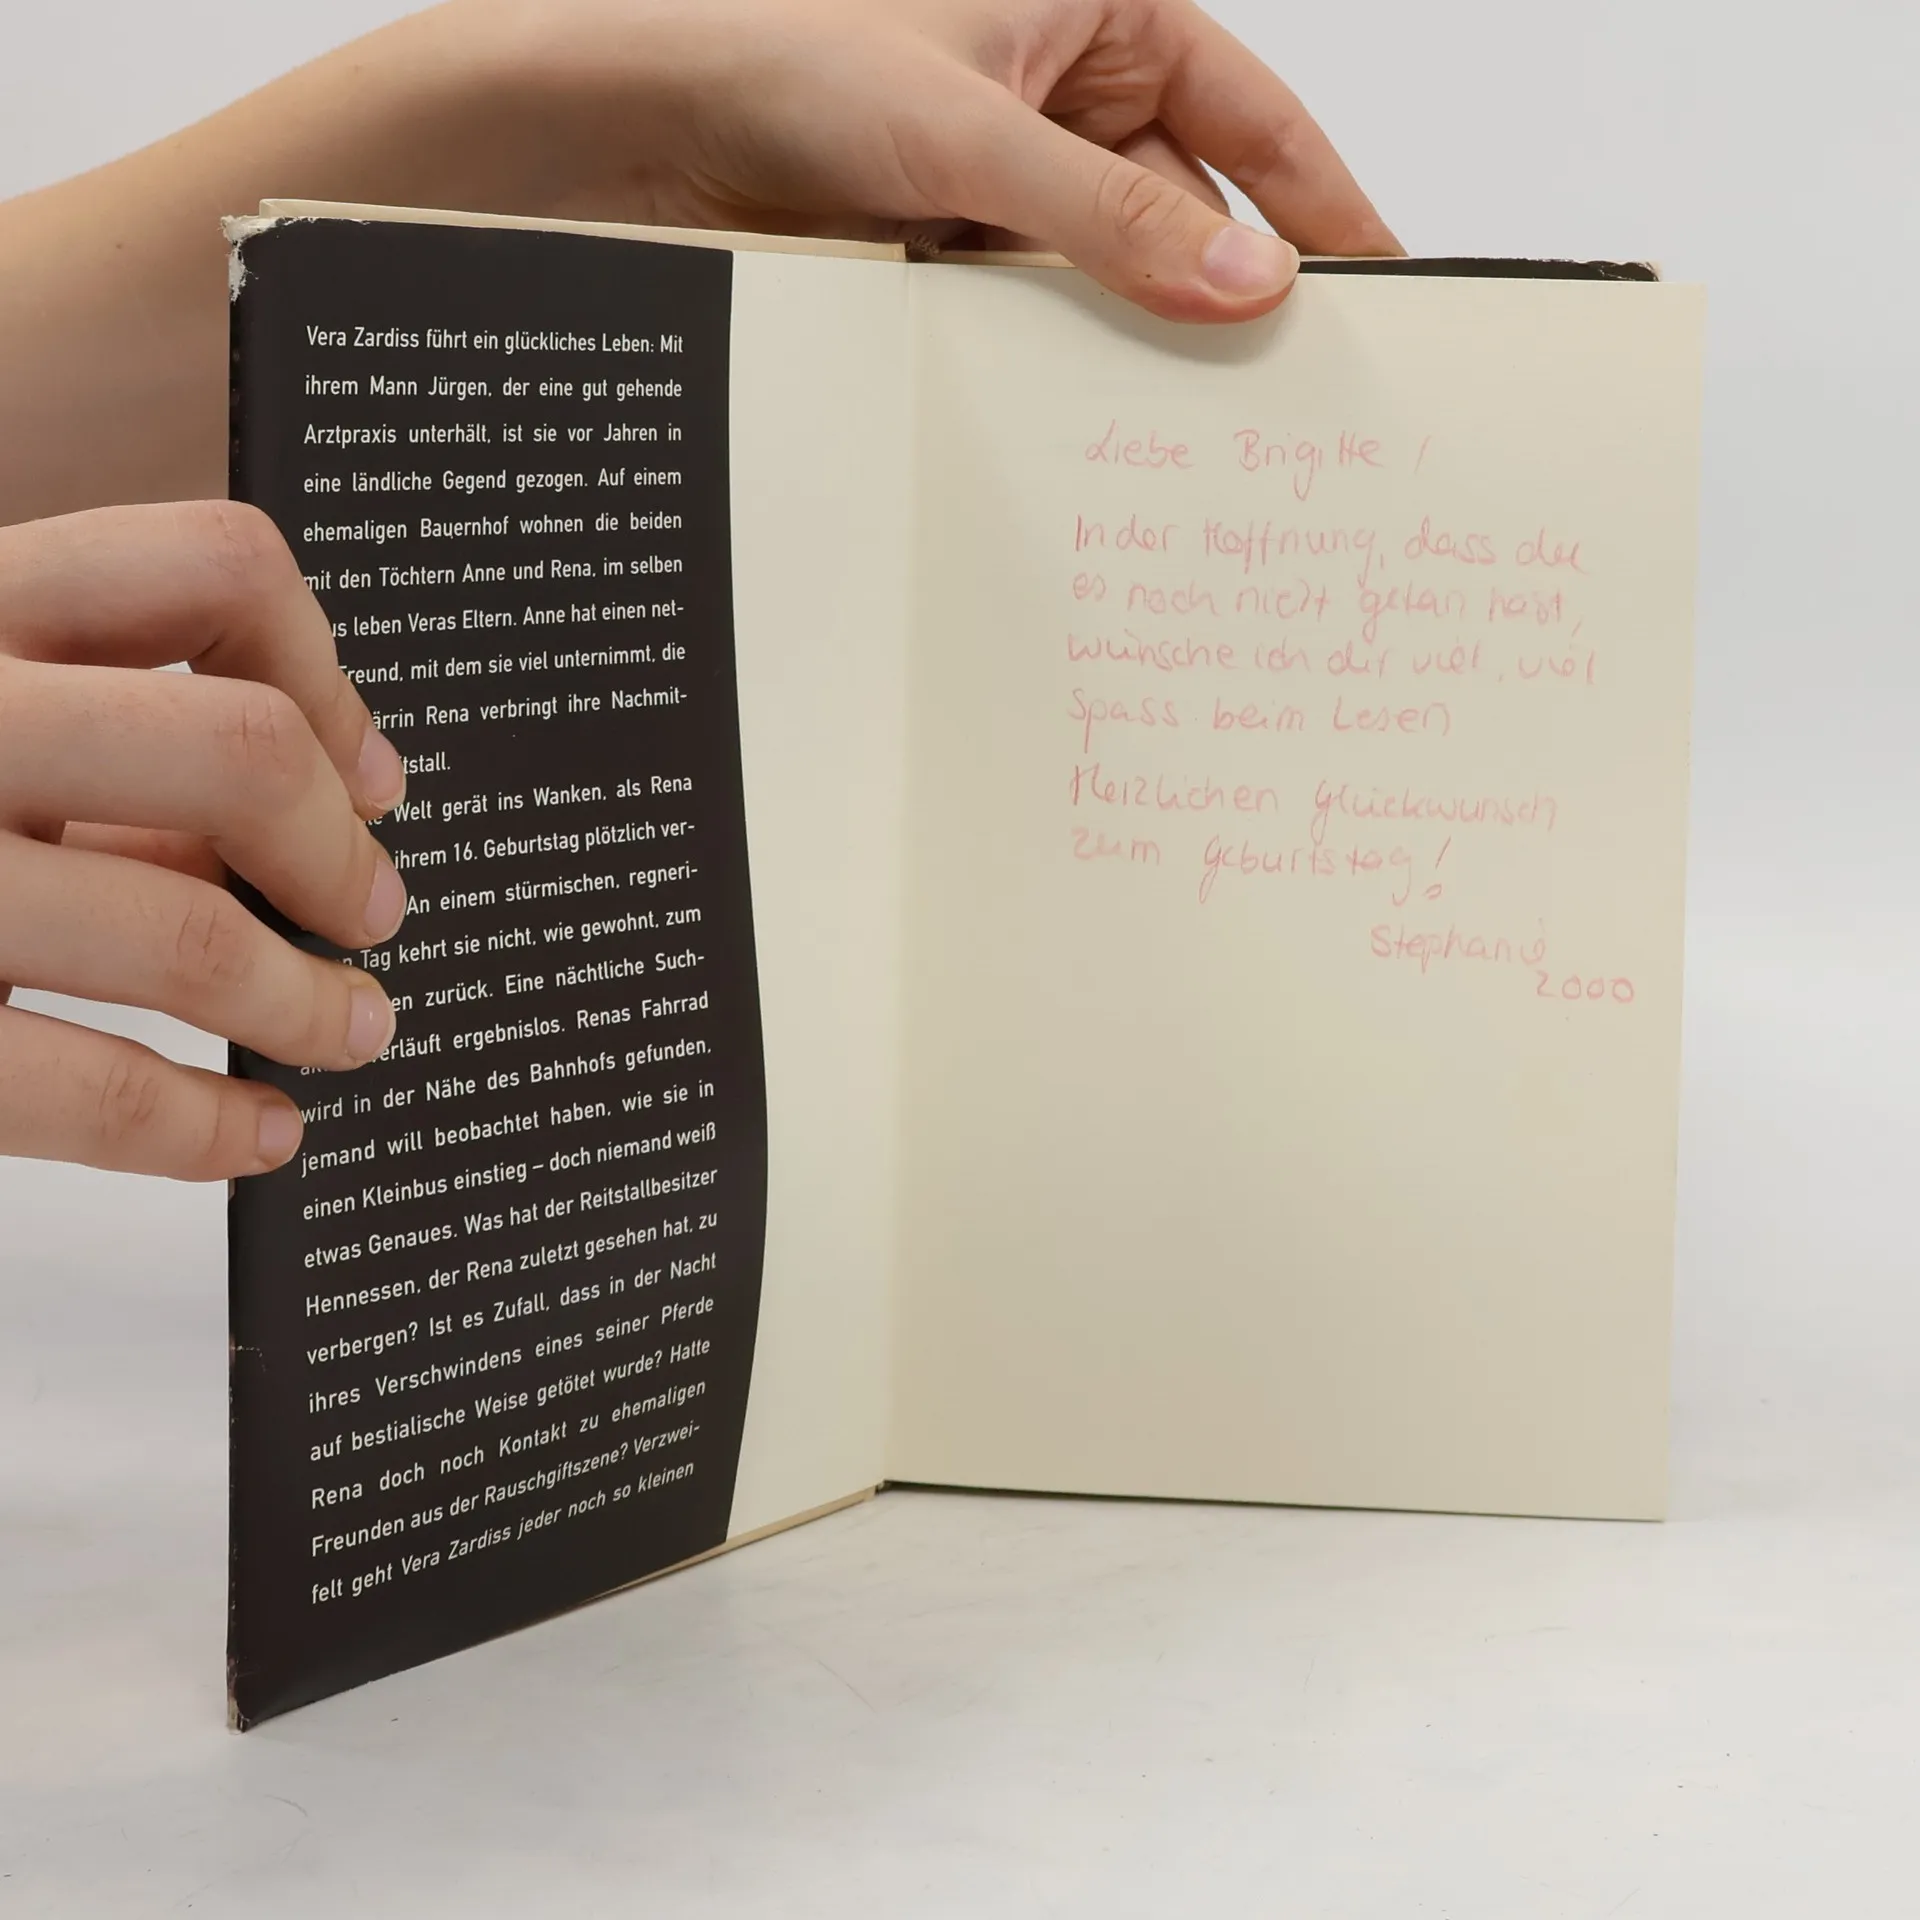 Vera Zardiss führt ein glückliches Leben: Mit
ihrem Mann Jürgen, der eine gut gehende
Arztpraxis unterhält, ist sie vor Jahren in
eine ländliche Gegend gezogen. Auf einem
ehemaligen Bauernhof wohnen die beiden
mit den Töchtern Anne und Rena, im selben
leben Veras Eltern. Anne hat einen net-
Freund, mit dem sie viel unternimmt, die
Rena verbringt ihre Nachmit-
Welt gerät ins Wanken, als Rena
ihrem 16. Geburtstag plötzlich ver-
An einem stürmischen, regneri-
Tag kehrt sie nicht, wie gewohnt, zum
zurück. Eine nächtliche Such-
verläuft ergebnislos. Renas Fahrrad
wird in der Nähe des Bahnhofs gefunden,
jemand will beobachtet haben, wie sie in
einen Kleinbus einstieg – doch niemand weiß
etwas Genaues. Was hat der Reitstallbesitzer
Hennessen, der Rena zuletzt gesehen hat, zu
verbergen? Ist es Zufall, dass in der Nacht
ihres Verschwindens eines seiner Pferde
auf bestialische Weise getötet wurde? Hatte
Rena doch noch Kontakt zu ehemaligen
Freunden aus der Rauschgiftszene? Verzwei-
felt geht Vera Zardiss jeder noch so kleinen
Liebe Brigitte!
In der Hoffnung, dass du
es noch nicht getan hast,
wünsche ich dir viel, viel
Spass beim Lesen
Herzlichen Glückwunsch
zum Geburtstag!
Stephanie
2000